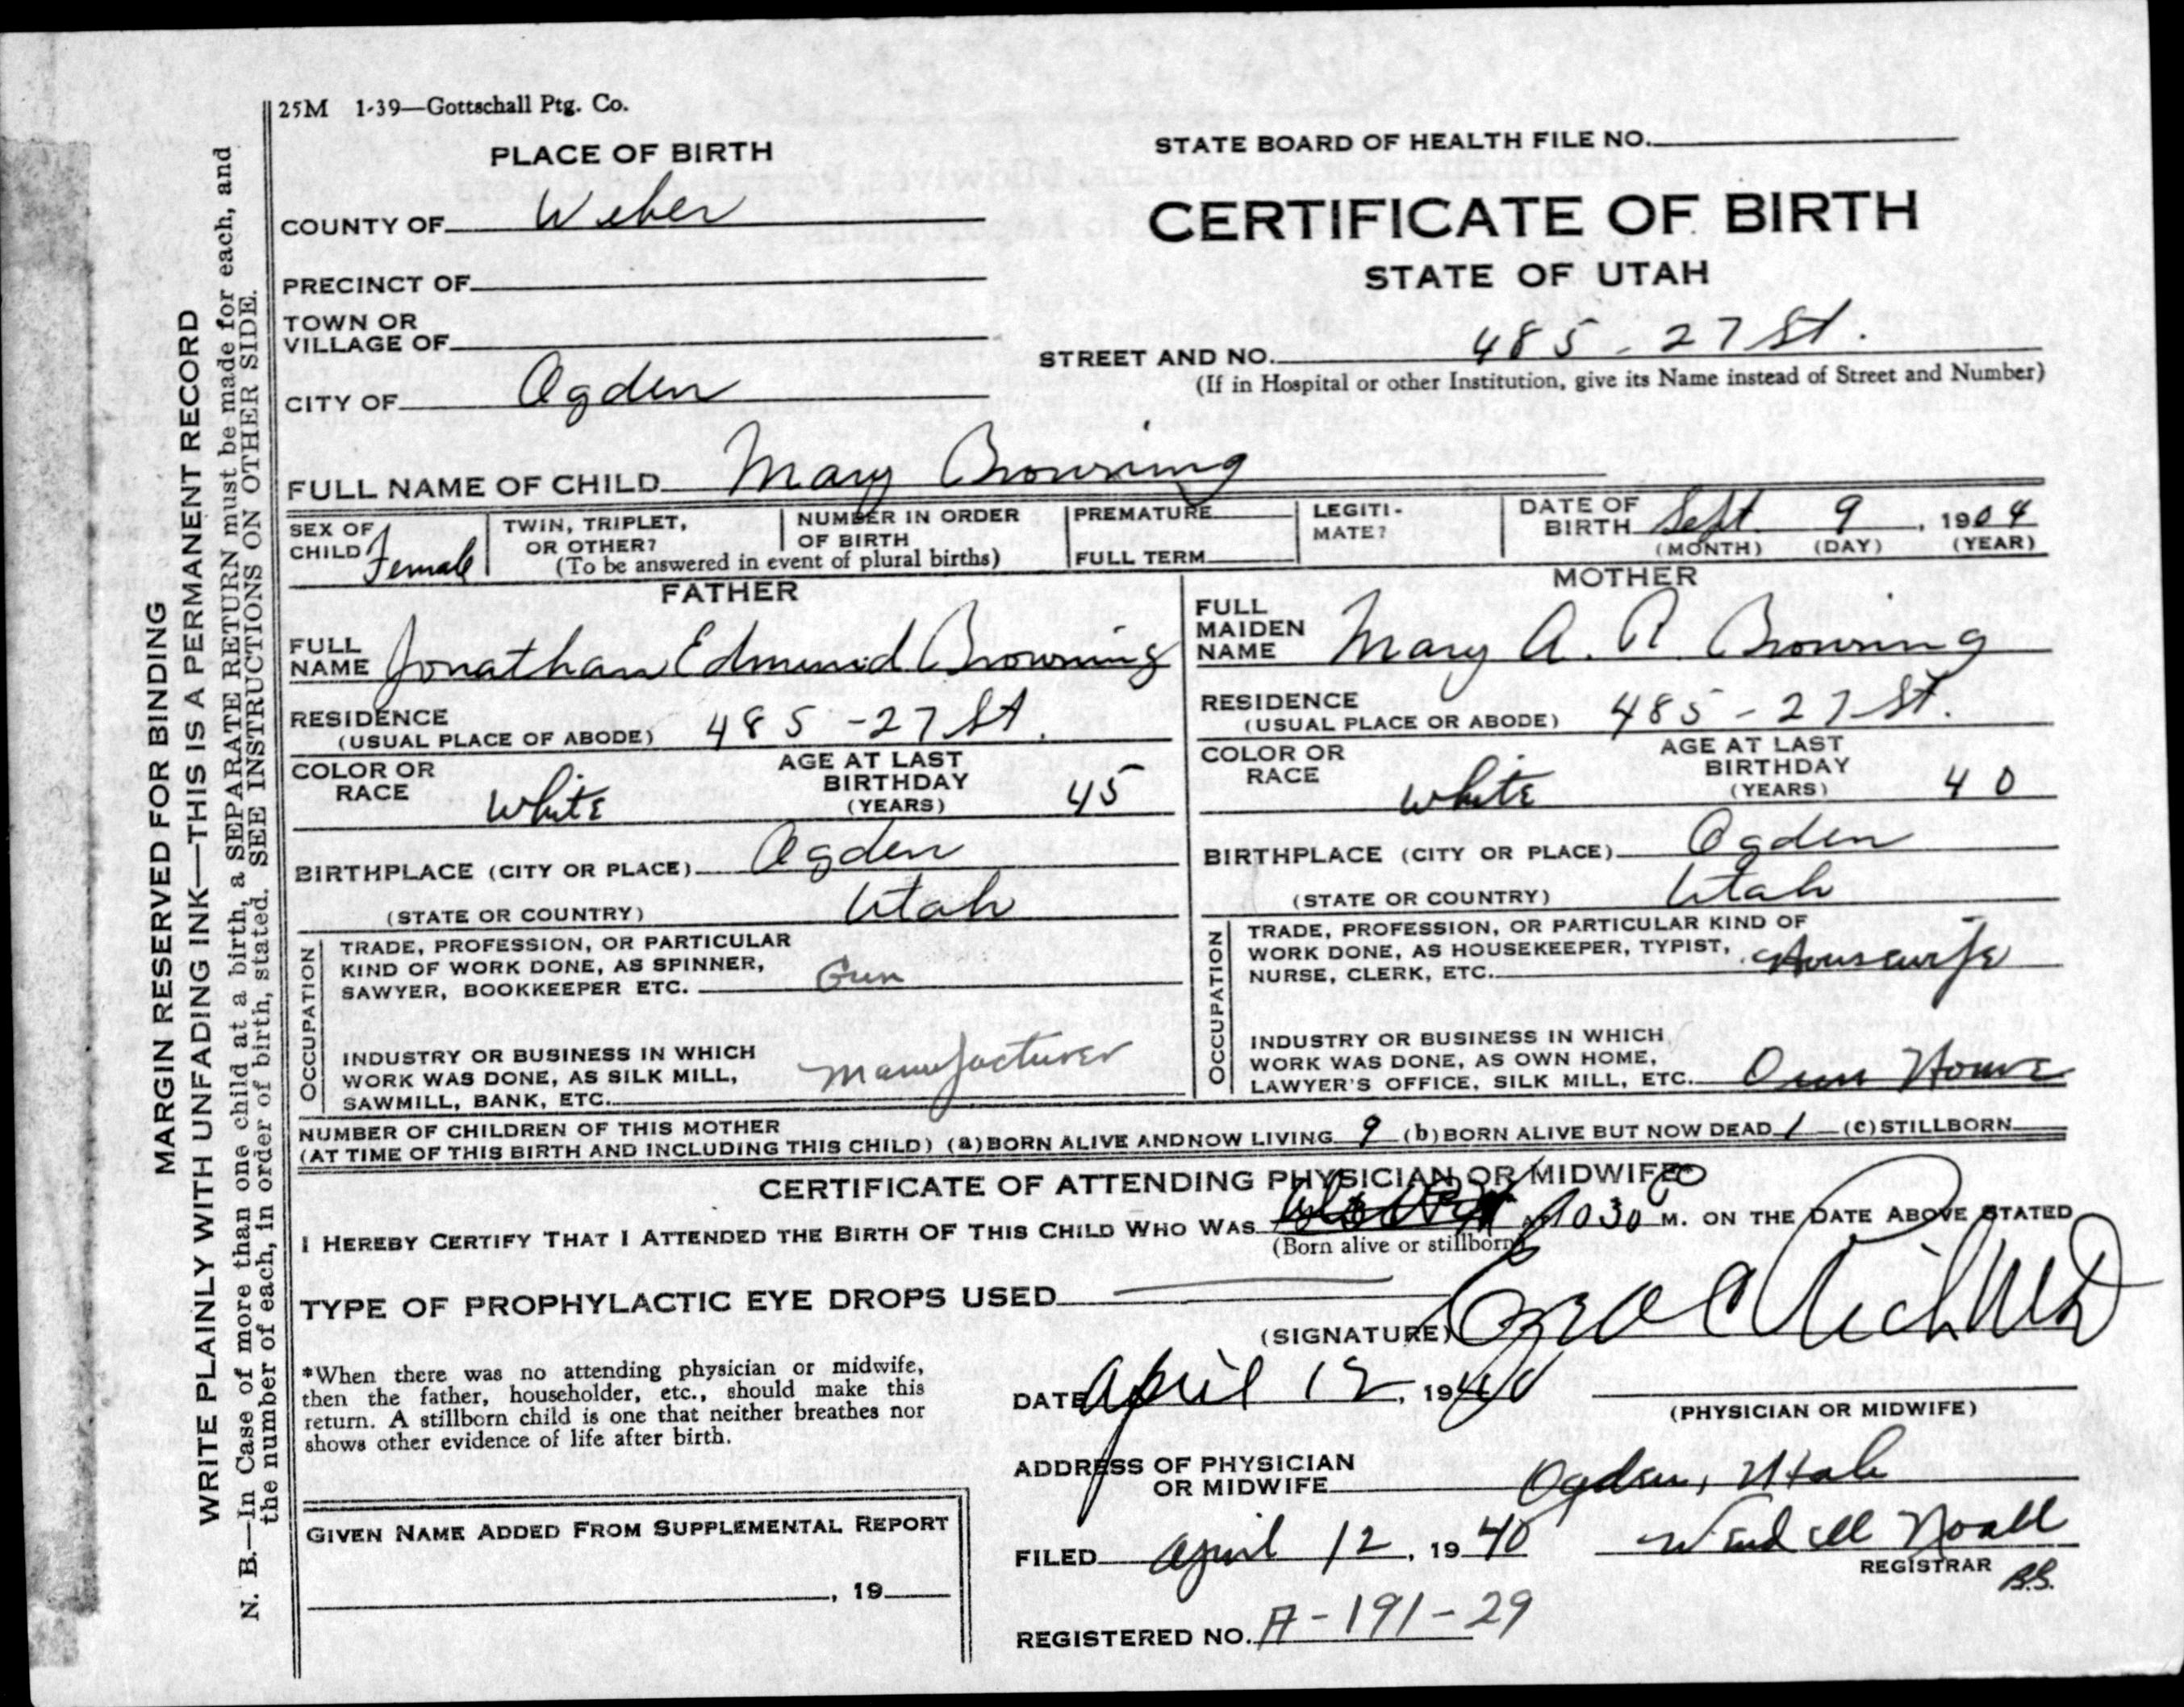 25M 1-39—Gottschall Ptg. Co.
PLACE OF BIRTH
COUNTY OF Weber
PRECINCT OF
TOWN OR
VILLAGE OF
CITY OF Ogden
STATE BOARD OF HEALTH FILE NO.
CERTIFICATE OF BIRTH
STATE OF UTAH
STREET AND NO. 485 - 27 St.
(If in Hospital or other Institution, give its Name instead of Street and Number)
FULL NAME OF CHILD Mary Browning
SEX OF
CHILD Female
TWIN, TRIPLET,
OR OTHER?
NUMBER IN ORDER
OF BIRTH
(To be answered in event of plural births)
PREMATURE
FULL TERM
LEGITI-
MATE?
DATE OF
BIRTH Sept. 9, 1904
(MONTH) (DAY) (YEAR)
FATHER
FULL
NAME Jonathan Edmund Browning
RESIDENCE
(USUAL PLACE OF ABODE) 485 - 27 St.
COLOR OR
RACE White
AGE AT LAST
BIRTHDAY
(YEARS) 45
BIRTHPLACE (CITY OR PLACE) Ogden
(STATE OR COUNTRY) Utah
OCCUPATION
TRADE, PROFESSION, OR PARTICULAR
KIND OF WORK DONE, AS SPINNER,
SAWYER, BOOKKEEPER ETC. Gun
INDUSTRY OR BUSINESS IN WHICH
WORK WAS DONE, AS SILK MILL,
SAWMILL, BANK, ETC. manufacturer
MOTHER
FULL
MAIDEN
NAME Mary A. R. Browning
RESIDENCE
(USUAL PLACE OR ABODE) 485 - 27 St.
COLOR OR
RACE white
AGE AT LAST
BIRTHDAY
(YEARS) 40
BIRTHPLACE (CITY OR PLACE) Ogden
(STATE OR COUNTRY) Utah
OCCUPATION
TRADE, PROFESSION, OR PARTICULAR KIND OF
WORK DONE, AS HOUSEKEEPER, TYPIST,
NURSE, CLERK, ETC. Housewife
INDUSTRY OR BUSINESS IN WHICH
WORK WAS DONE, AS OWN HOME,
LAWYER'S OFFICE, SILK MILL, ETC. Own Home
NUMBER OF CHILDREN OF THIS MOTHER
(AT TIME OF THIS BIRTH AND INCLUDING THIS CHILD) (a) BORN ALIVE AND NOW LIVING 9 (b) BORN ALIVE BUT NOW DEAD 1 (c) STILLBORN
CERTIFICATE OF ATTENDING PHYSICIAN OR MIDWIFE*
I HEREBY CERTIFY THAT I ATTENDED THE BIRTH OF THIS CHILD WHO WAS 1030 P M. ON THE DATE ABOVE STATED
(Born alive or stillborn)
TYPE OF PROPHYLACTIC EYE DROPS USED
(SIGNATURE) Ezra C Rich MD
*When there was no attending physician or midwife,
then the father, householder, etc., should make this
return. A stillborn child is one that neither breathes nor
shows other evidence of life after birth.
DATE April 12, 1940
(PHYSICIAN OR MIDWIFE)
ADDRESS OF PHYSICIAN
OR MIDWIFE Ogden, Utah
GIVEN NAME ADDED FROM SUPPLEMENTAL REPORT
, 19
FILED April 12, 1940
Wendell Noall
REGISTRAR
B.S.
REGISTERED NO. A-191-29
MARGIN RESERVED FOR BINDING
WRITE PLAINLY WITH UNFADING INK—THIS IS A PERMANENT RECORD
N. B.—In Case of more than one child at a birth, a SEPARATE RETURN must be made for each, and
the number of each, in order of birth, stated. SEE INSTRUCTIONS ON OTHER SIDE.